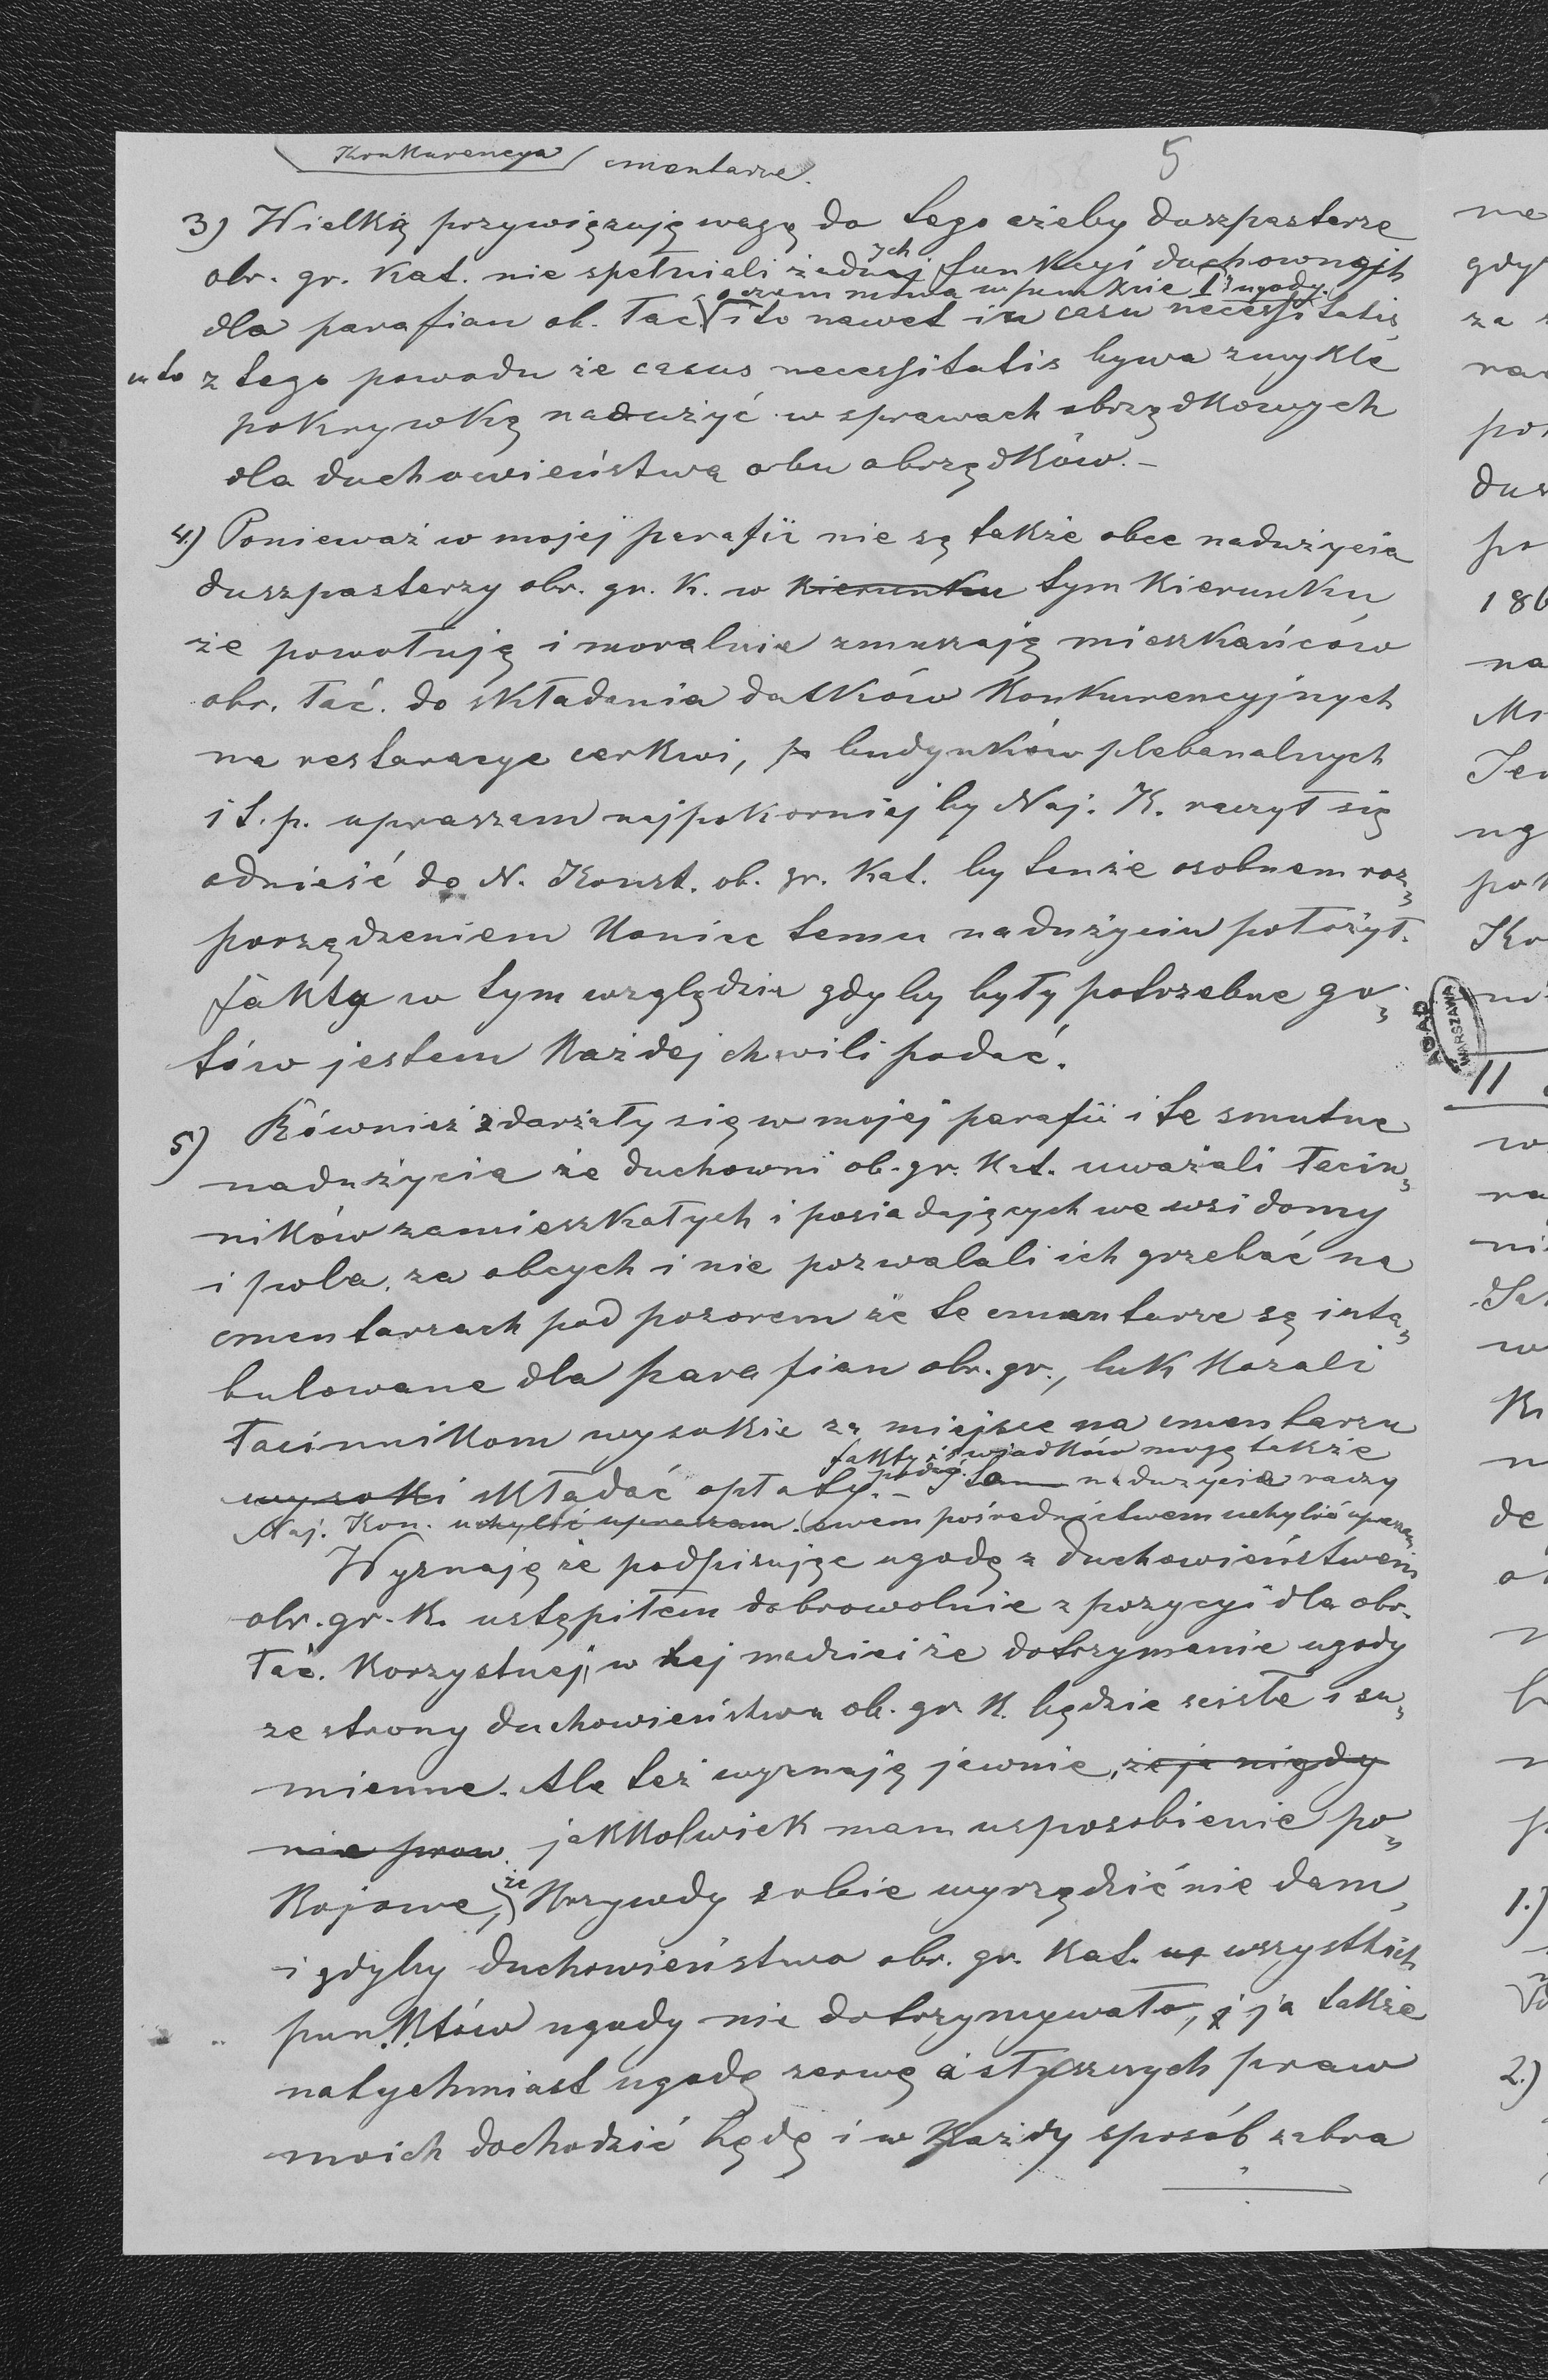 Konkurencya cmentarze. 5
3) Wielką przywięzuję wagę do tego ażeby duszpasterze
obr. gr. kat. nie spełniali żadnych funkcyi duchownych
o czem mowa w punkcie I ugody.
dla parafian ob. łac. i to nawet in casu necessitatis,
a to z tego powodu że casus necessitatis bywa zwykle
pokrywką nadużyć w sprawach obrządkowych
dla duchowieństwa obu obrządków. –
4.) Ponieważ w mojej parafii nie są także obce nadużycia
duszpasterzy obr. gr. k. w kierunku tym kierunku
że powołują i moralnie zmuszają mieszkańców
obr. łać. do składania datków konkurencyjnych
na restauracye cerkwi, p budynków plebanalnych
i t. p. upraszam najpokorniej by Naj. K. raczył się
odnieść do N. Konst. ob. gr. kat. by tenże osobnem roz„
porządzeniem koniec temu nadużyciu położył.
Fakta w tym względzie gdyby były potrzebne go„
tów jestem każdej chwili podać.
5) Również zdarzały się w mojej parafii i te smutne
nadużycia że duchowni ob. gr. kat. uważali łacin„
ników zamieszkałych i posiadających we wsi domy
i pola, za obcych i nie pozwalali ich grzebać na
cmentarzach pod pozorem że te cmentarze są inta„
bulowane dla parafian obr. gr., lub kazali
łacinnikom wysokie za miejsce na cmentarzu
fakty i świadków mogę także
podać.
wysoki składać opłaty. – nadużycia raczy
Naj. Kon. uchylić upraszam. swem pośrednictwem uchylić upraszam
Wyznaję że podpisując ugodę z duchowieństwem
obr. gr. k. ustąpiłem dobrowolnie z pozycyi dla obr.
łać. korzystnej, w tej nadziei że dotrzymanie ugody
ze strony duchowieństwa ob. gr. k. będzie ścisłe i su„
mienne. Ale też wyznaję jawnie, że ja nigdy
nie praw. jakkolwiek mam usposobienie po„
kojowe, że krzywdy sobie wyrządzić nie dam,
i gdyby duchowieństwo obr. gr. kat. wszystkich
punktów ugody nie dotrzymywało, i ja także
natychmiast ugodę zerwę i słusznych praw
moich dochodzić będę i w każdy sposób zabra
AGAD
WARSZAWA